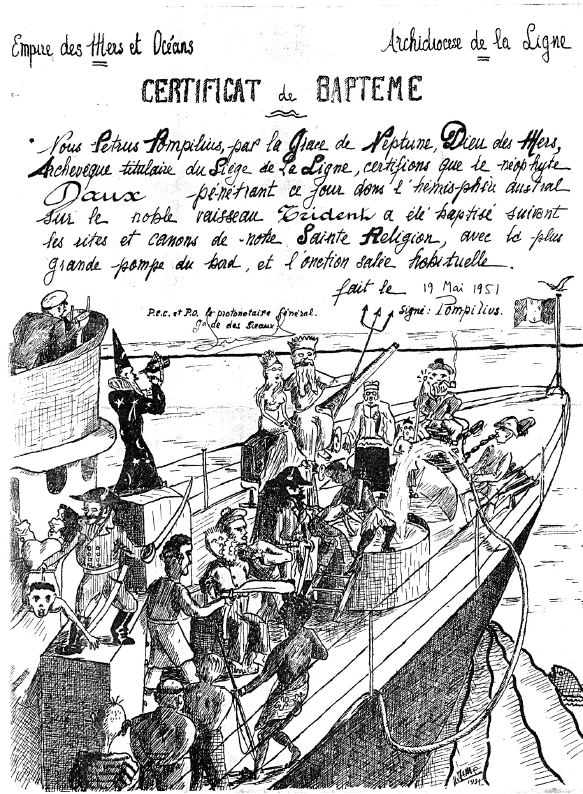 Empire des Mers et Océans
Archidiocese de la Ligne
CERTIFICAT de BAPTEME
Nous Petrus Pompilius, par la Grace de Neptune, Dieu des Mers,
Archevêque titulaire du Siège de La Ligne, certifions que le néophyte
Daux pénétrant ce jour dans l'hémisphère austral
sur le noble vaisseau Trident a été baptisé suivant
les rites et canons de notre Sainte Religion, avec la plus
grande pompe du bord, et l'onction salée habituelle.
fait le 19 Mai 1951
P.c.c. et P.O. le protonotaire Général.
Signé: Pompilius.
gde des Sceaux
1951